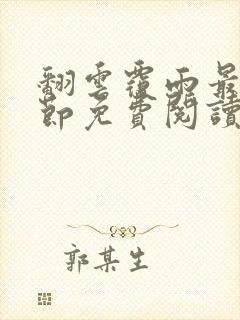 翻雲覆雨最
節免費閱讀
郭某生